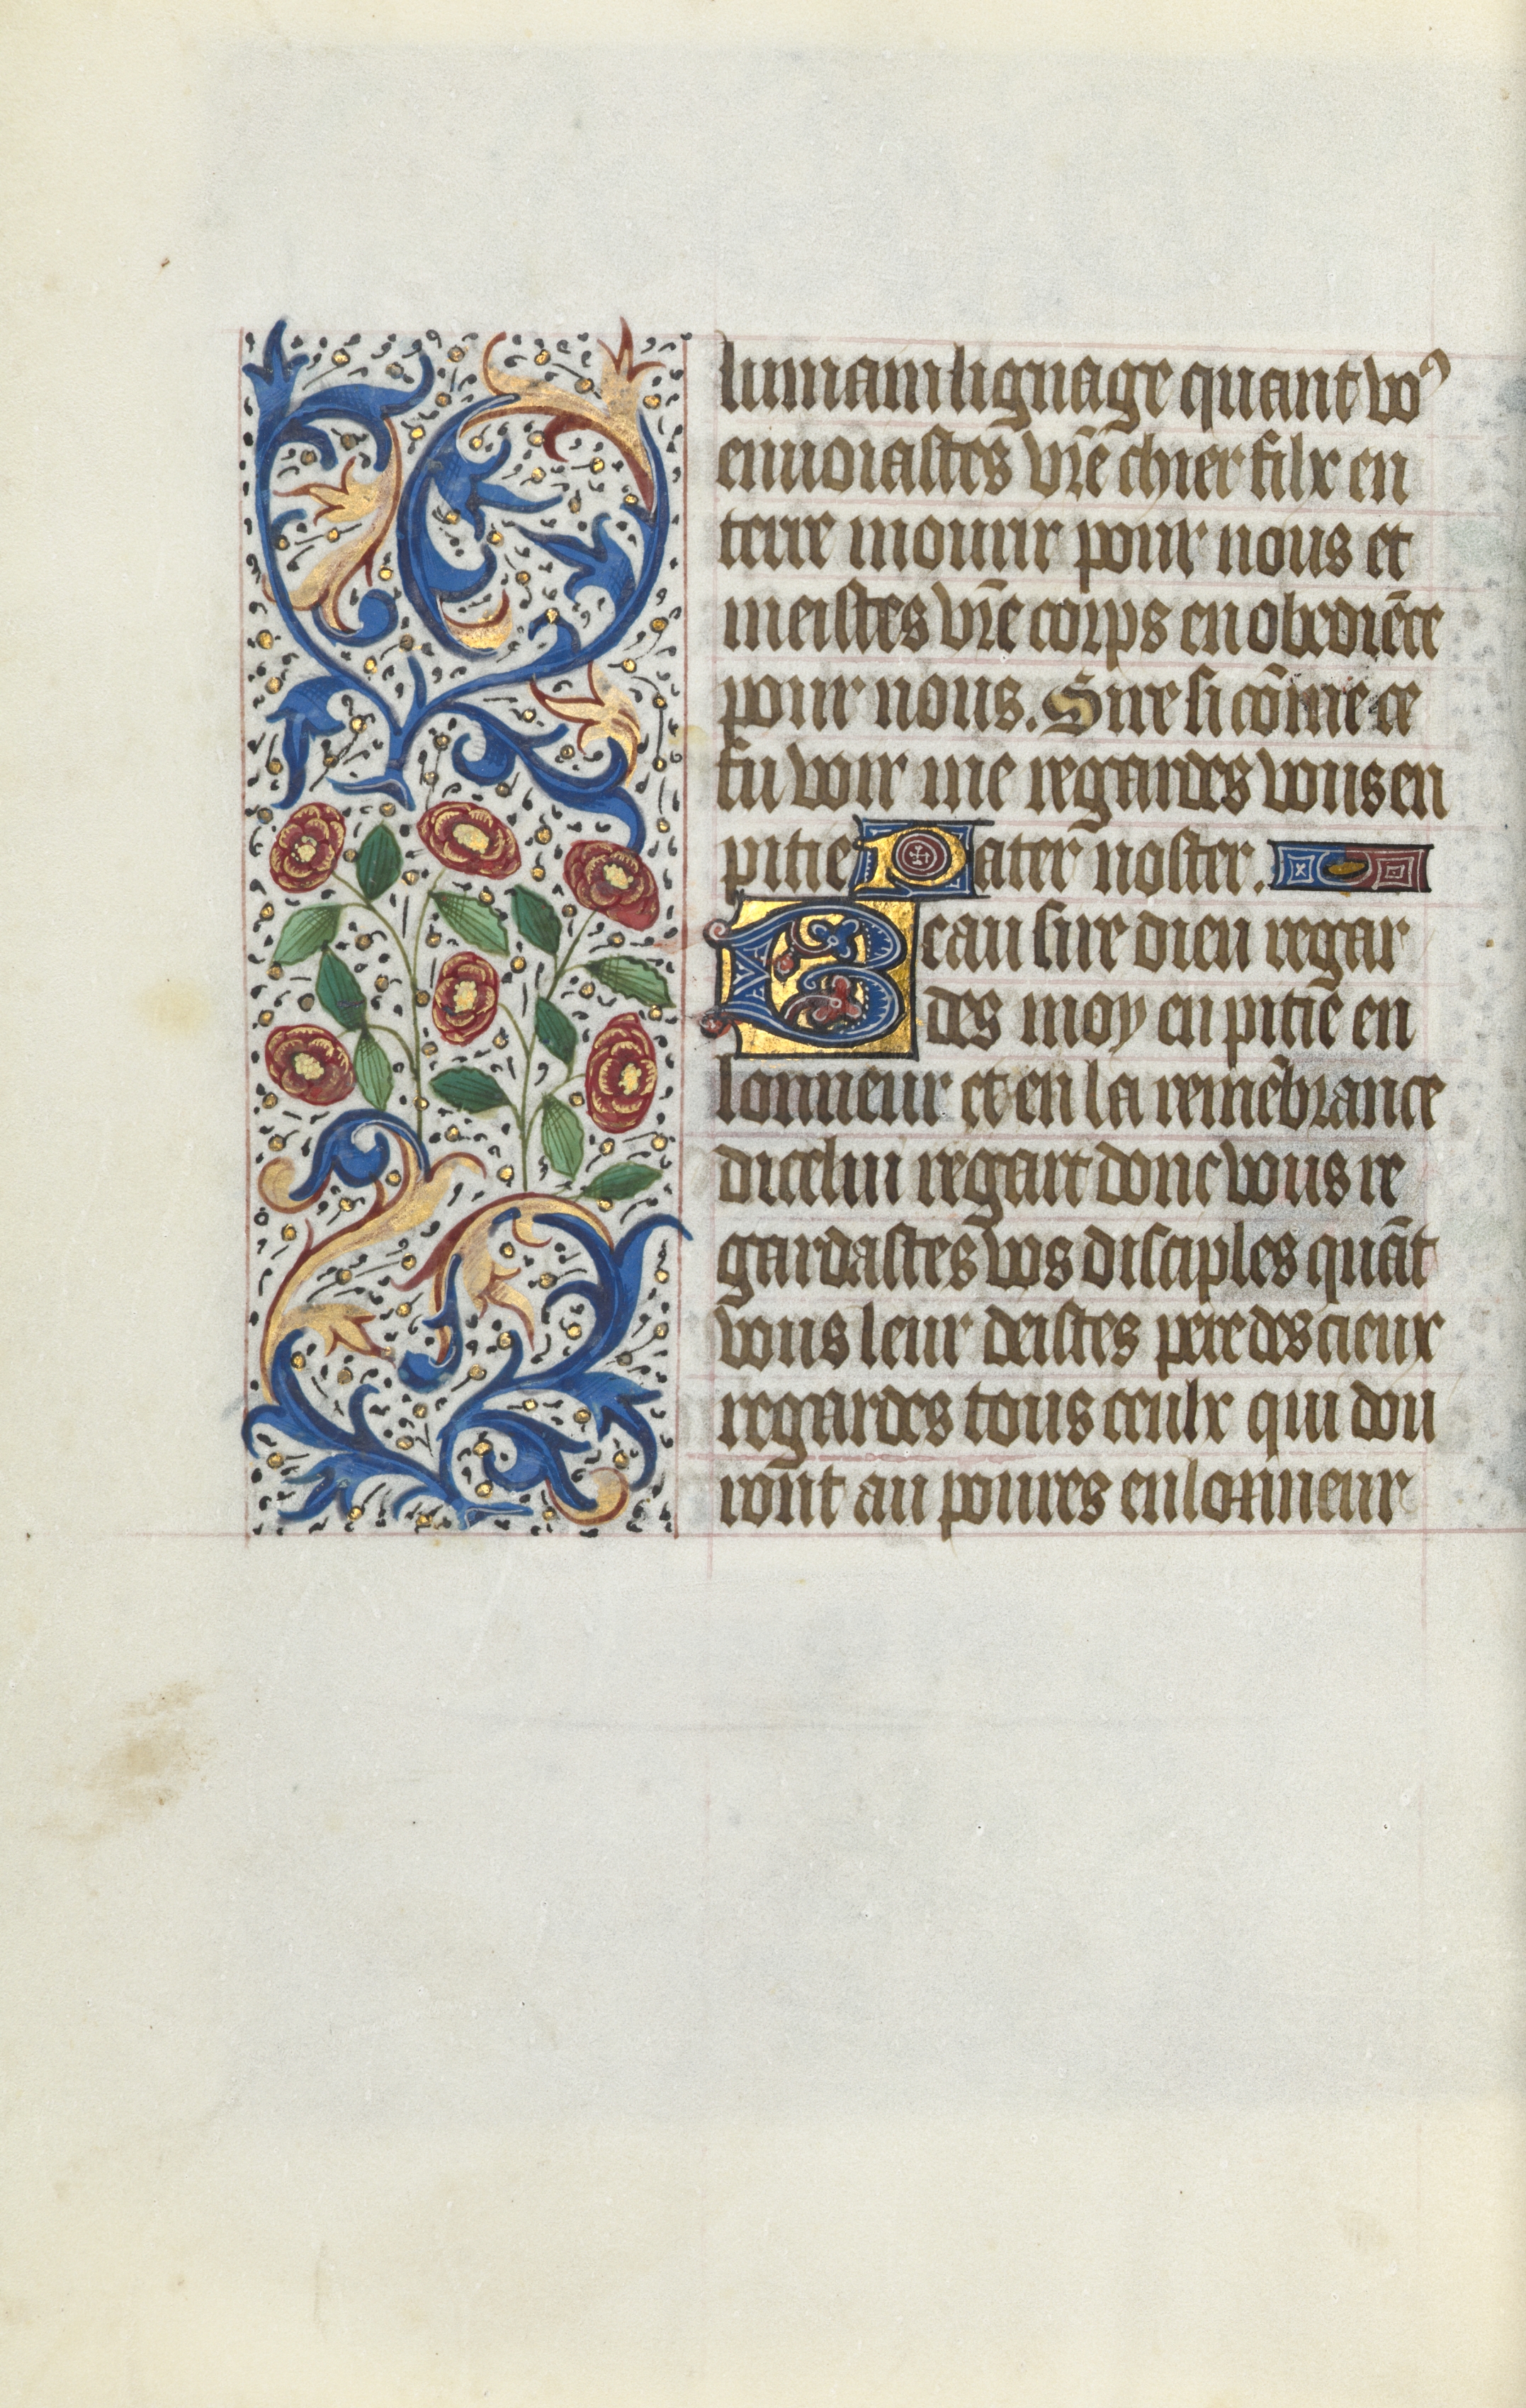 lumain lignage quant vo⁹
enuoiastes vr̄e chier filx en
terre mourir pour nous et
meistes vr̄e corps en obediēce
pour nous. Sire si cōme ce
fu voir me regardes vous en
pitie Pater noster.
Beau sire dieu regar
des moy en pitie en
lonneur et en la remēbrance
dicelui regart donc vous re
gardastes vos disciples quāt
vous leur deistes pere des cieux
regardes tous ceulx qui don
ront au poures en lonneur